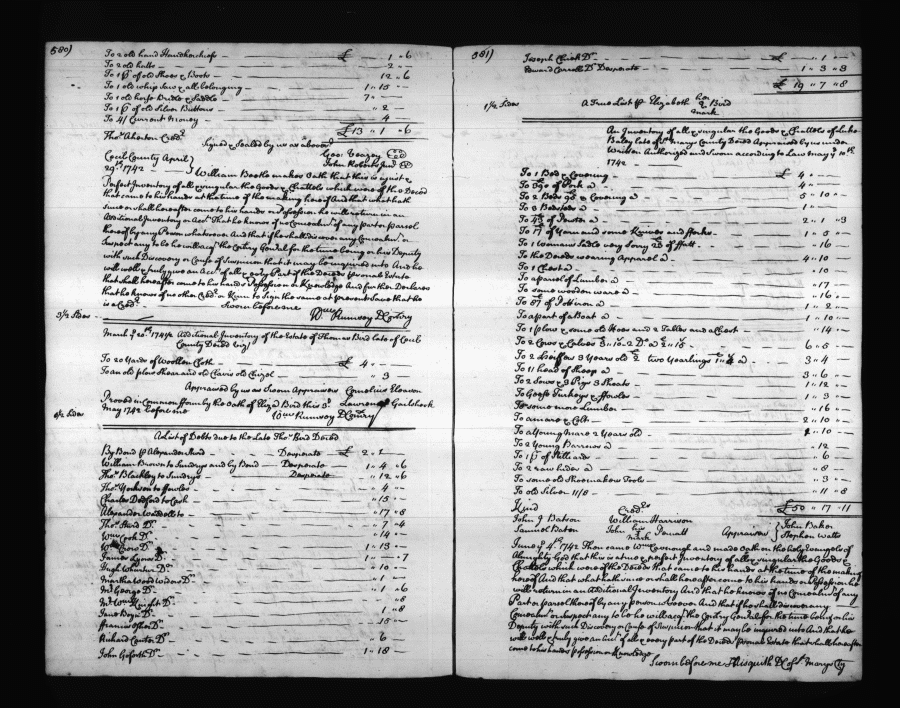 580)
To 2 old hand Handkerchiefs — £ „ 1 „ 6
To 2 old hatts — „ 2 „ —
To 1 pr of old Shoes & Boots — 12 „ 6
To 1 old whip Saw & all belonging — 1 „ 15 „ —
To 1 old horse Bridle & Saddle — 7 „ „ —
To 1 pr of old Silver Buttons — „ 2 „ —
To Current money — 4 —
£ 13 „ 1 „ 6
Thos Aherton Credr
Signed & Sealed by us as above
Geo: Veazey
John Roberts Junr
Cecil County April
29th 1742
William Boothe makes Oath that this is a just &
Perfect Inventory of all & singular the Goods & Chattels which were of the Decd
that came to his hands at the time of the making hereof And that what hath
since or shall hereafter come to his hands or Possession he will return in an
Additional Inventory or Acct That he knows of no Concealmt of any part or parcel
thereof by any Person whatsoever And that if he shall discover any Concealmt or
Suspect any to be he will acqt the Comry Genral for the time being or his Deputy
with such Discovery or Cause of Suspicion that it may be inquired into And he
will well & truly give an Acct of all & every Part of the Deceds personal Estate
that shall hereafter come to his hands Possession or Knowledge And further Declares
that he knows of no other Credr or Kin to Sign the same at present Save that he
is a Credr
Sworn before me
Wm Rumsey D Comry
3/2 Sides
March ye 20th 1741/2 Additional Inventory of the Estate of Thomas Bird late of Cecil
County Decd (viz)
To 20 Yards of Woollen Cloth — £ 4 „ —
To an old plow Shear and old Clavis old Chizel — „ 3 —
Appraised by us as Sworn Appraisers Cornelius Eleason
Proved in Common form by the Oath of Eliza Bird this 3d Lawrence
May 1742 before me Wm Rumsey D Comry
6/2 Sides
A List of Debts due to the Late Thos Bird Deced
By Bond pr Alexander — Desperate — £ 2 „ 2 —
William Brown to Sundrys and by Bond — Desperate — 1 „ 4 „ 6
Thos Blackley to Sundrys — Desperate — „ 12 „ 6
Thos to fowles — „ 4 „ —
Charles Dodford to Cash — „ 15 „ —
Alexander to — „ 17 „ 8
Thos Do — „ 7 „ 4
Wm Cook Do — „ 14 „ —
Wm Do — „ 13 „ —
James Do — 1 „ — „ 7
Hugh Do — „ 10 „ —
Martha Wood Widow Do — „ 1 „ —
Mr George Do — „ 1 „ 6
Mr Wm Knight Do — „ „ 8
Jane Do — 1 „ 8
Francis Do — „ 15 „ —
Richard Do — „ 6 „ —
John Goforth Do — 1 „ 18 „ —
581)
Joseph Do — £ „ 1 „ —
Edward Do Desperate — 1 „ 3 „ 3
£ 19 „ 7 „ 8
A True List pr Elizabeth her mark Bird
1/2 Sides
An Inventory of all & singular the Goods & Chattels of Luke
Bailey late of St Marys County Deced Appraised by us under
Written Authorized and Sworn according to Law May ye 10th
1742
To 1 Bed & Covering — £ 4 „ —
To of Pork a — 4 „ —
To 2 Beds & Covering a — 5 „ 10 „ —
To 3 Bedsteds a — 1 „ „ —
To of Pewter a — 2 „ 1 „ 3
To of Yarn and some Knives and forks — 1 „ 5 „ —
To 1 womans Sadle very Sorry of ffatt — „ 16 „ —
To the Deceds wearing Apparel a — 4 „ 10 „ —
To 1 Chest a — „ 10 „ —
To a parcel of Lumber a — „ 17 „ —
To some wooden ware a — „ 16 „ —
To of Pott iron a — 1 „ 2 „ —
To a part of a Boat a — 1 „ 10 „ —
To 1 plow & some old Hoes and 2 Tables and a Chest — „ 14 „ —
To 2 Cows & Calves — 6 „ 8 „ —
To 2 heiffers 3 years old two Yearlings — 3 „ 4 —
To 11 head of Sheep a — 3 „ 6 „ —
To 2 Sows & 3 Pigs 3 Shoats — 1 „ 12 „ —
To Geese Turkeys & ffowles — „ 13 „ —
To some more Lumber — „ 16 „ —
To a mare & Colt — 2 „ 10 „ —
To a Young Mare 2 Years old — 1 „ 10 „ —
To 2 Young Barrows a — „ 12 „ —
To 1 pr of Stilliards — „ 6 „ —
To 2 raw hides a — „ 8 „ —
To some old Shoemakers Tools — „ 3 „ —
To old Silver 11/8 — „ 11 „ 8
£ 50 „ 17 „ 11
Kind
Credrs
John J Batson William Harrison
Samuel Batson John his mark
Appraisers John Baker
Stephen Watts
June ye 4th 1742 Then came Wm and made Oath on the holy Evangels of
Almighty God that this is a true & perfect Inventory of all & singular the Goods &
Chattels which were of the Deceds that came to his hands at the time of the making
hereof And that what hath since or shall hereafter come to his hands or Possession he
will return in an Additional Inventory And that he knows of no Concealmt of any
Part or parcel thereof by any person whatsoever And that if he shall discover any
Concealmt or Suspect any to be he will acqt the Comry Genral for the time being or his
Deputy with such Discovery or Cause of Suspicion that it may be inquired into And that he
will well & truly give an acct of all & every part of the Deceds personal Estate that shall hereafter
come to his hands possession or Knowledge
Sworn before me T Aisquith D C of St Marys Cty